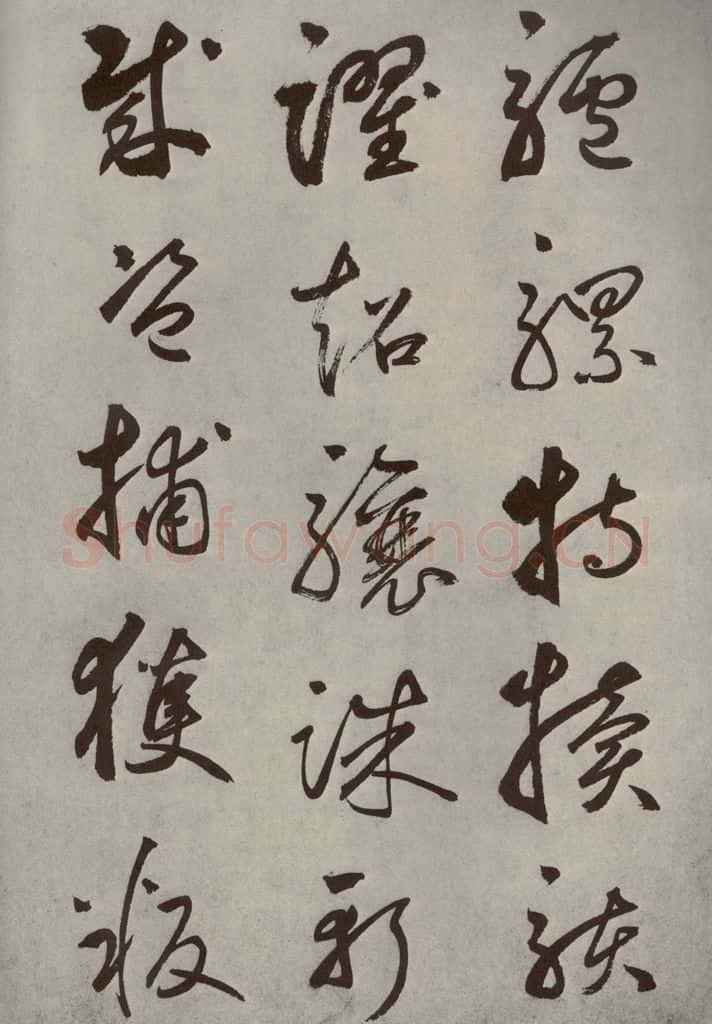 驢騾特犢駭
躍超驤誅斬
賊盜捕獲叛
Shufawang.CN